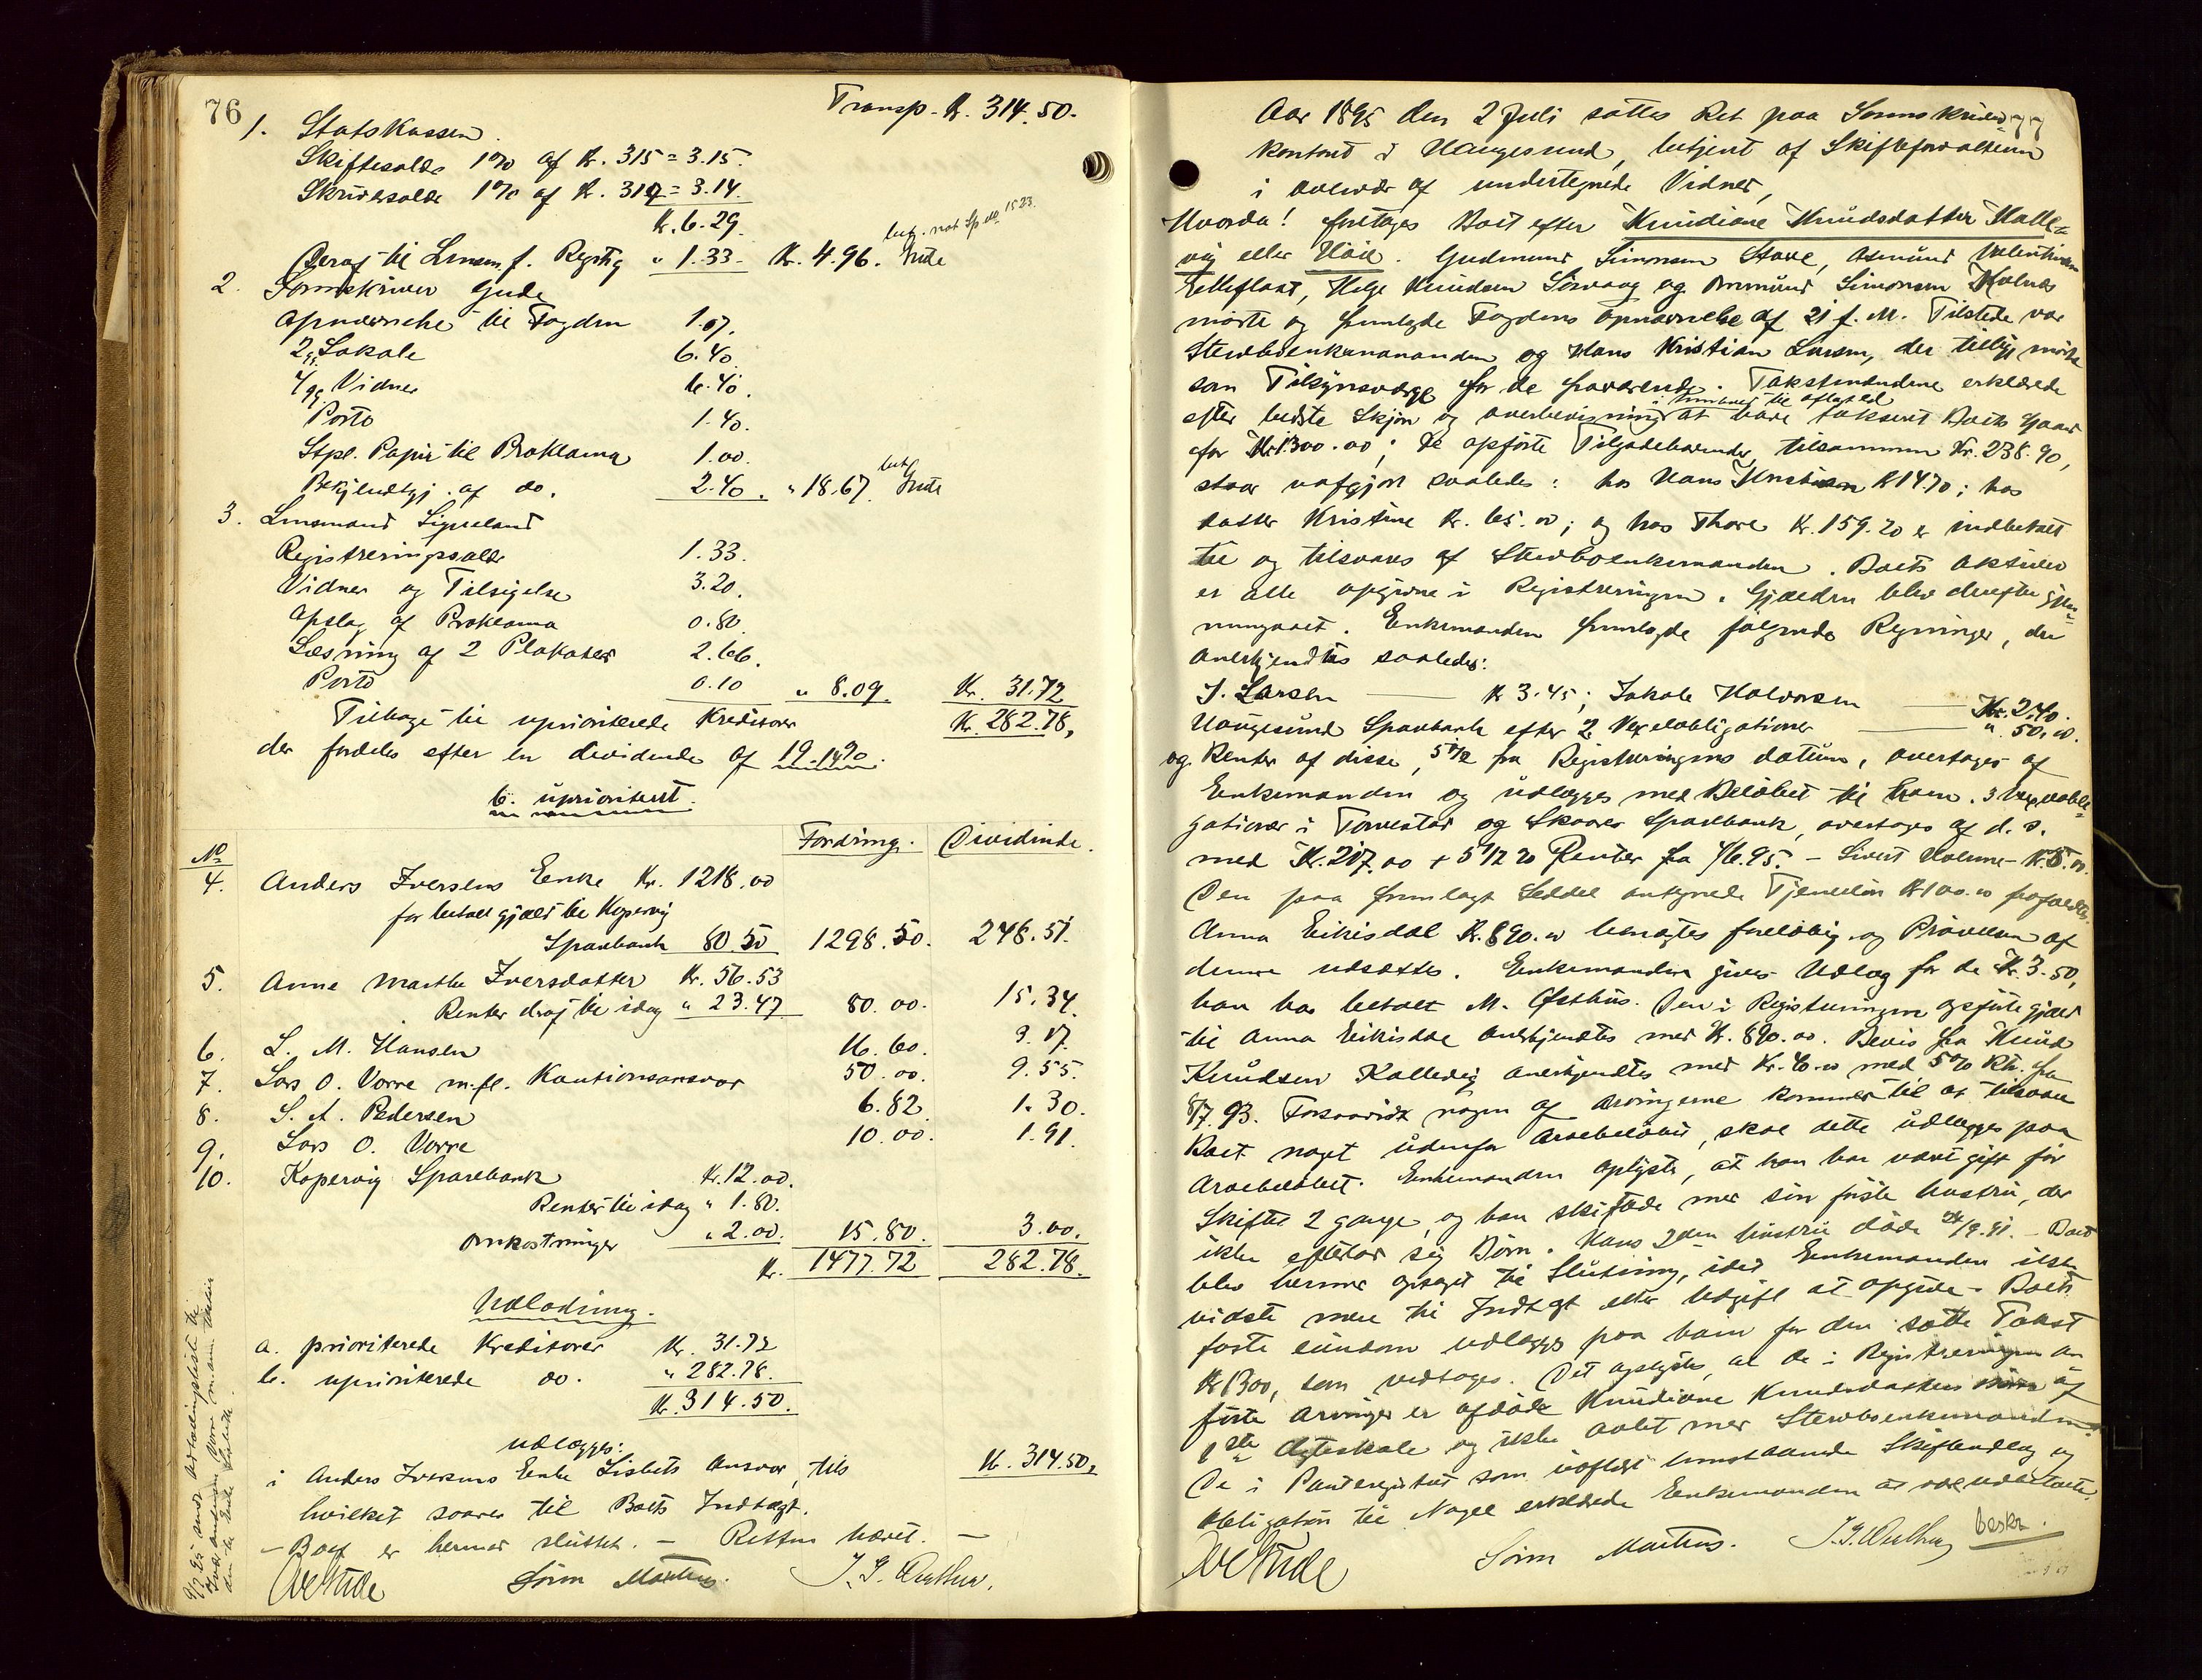 76
Transp. Kr. 314.50.
1. Statskassen.
Skiftesalær 1% af Kr. 315 = 3.15.
Skriversalær 1% af Kr. 314 = 3.14.
Kr. 6.29.
bet. not Sp. No. 1523.
Deraf til Lensm. f. Regstrg " 1.33. Kr. 4.96. Gude
2. Sorenskriver Gude
Opnævnelse til Fogden 1.07.
2 gg. Lokale 6.40.
4 gg. Vidner 6.40.
Porto 1.40.
Stpl. Papir til Proklama 1.00.
bet.
Bekjendtgj. af do. 2.40. " 18.67. Gude
3. Lensmand
Registreringssalær 1.33.
Vidner og Tilsigelse 3.20.
Opslag af Proklama 0.80.
Læsning af 2 Plakater 2.66.
Porto 0.10 " 8.09. Kr. 31.72
Tilbage til uprioriterede Kreditorer Kr. 282.78,
der fordeles efter en dividende af 19.14%.
b. uprioritert.
No. Fordring. Dividende.
4. Anders Iversens Enke Kr. 1218.00
for betalt gjæld til Kopervig
Sparebank 80.50 1298.50. 248.51.
5. Anne Marthe Iversdatter Kr. 56.53
Renter deraf til idag " 23.47 80.00. 15.34.
6. L. M. Hansen 16.60. 3.17.
7. Lars O. Vorre m.fl. Kautionsansvar 50.00. 9.55.
8. S. A. Pedersen 6.82. 1.30.
9. Lars O. Vorre 10.00. 1.91.
10. Kopervig Sparebank Kr. 12.00.
Renter til idag " 1.80.
Omkostninger " 2.00. 15.80. 3.00.
Kr. 1477.72 282.78.
Udlodning.
a. prioriterede Kreditorer Kr. 31.72
b. uprioriterede do. " 282.78.
Kr. 314.50.
udlægges:
i Anders Iversens Enke Lisbets Ansvar, tils Kr. 314.50,
hvilket svarer til Boets Indtægt.
- Boet er hermed sluttet. - Retten hævet. -
Gude Søren Martens. J. G.
sendt udlodningsliste til
77
Aar 1895 den 2 Juli sattes Ret paa Sorenskriver
kontoret i Haugesund, betjent af Skifteforvalteren
i overvær af undertegnede Vidner,
Hvorda! foretoges Boet efter Knudiane Knudsdatter Kalle-
vig eller Høie. Gudmund Simonsen Stave, Asmund Valentinsen
Velleflaat, Helge Knudsen Sørvaag og Ommund Simonsen Kolnes
mødte og fremlagde Fogdens Opnævnelse af 21 f. M. Tilstede var
Stervboenkemanden og Hans Kristian Larsen, der tillige mødte
som Tilsynsværge for de fraværende. Takstmændene erklærede
i henhold til aflagt ed
efter bedste Skjøn og overbevisning at have takseret Boets Gaard
for Kr. 1300.00; De opførte Tilgodehavender, tilsammen Kr. 238.90,
staar uafgjort saaledes: hos Hans Kristian Kr 14.70; hos
datter Kristine Kr. 65.00; og hos Thore Kr. 159.20 er indbetalt
til og tilsvares af Stervboenkemanden. Boets Aktiver
er alle opgivne i Registreringen. Gjælden blev derefter gjen-
nemgaaet. Enkemanden fremlagde følgende Regninger, der
anerkjendtes saaledes:
J. Larsen — Kr 3.45; Jakob Halvorsen — Kr. 2.40.
Haugesund Sparebank efter 2 Vexelobligationer — " 50.00.
og Renter af disse, 5% fra Registreringens datum, overtages af
Enkemanden og udlægges med Beløbet til ham. 3 Vexelobli-
gationer i Torvestad og Skaares Sparebank, overtages af d. s.
med Kr. 207.00 + 5 1/2 % Renter fra 4/6.95. - Sivert - Kr. 5.00.
Den paa fremlagt Seddel antegnede Tjenerløn Kr 100.00 frafaldtes.
Anna Eikisdal Kr. 890.00 benægtes foreløbig og Prøvelsen af
denne udsættes. Enkemanden gives Udlæg for de Kr. 3.50,
han har betalt M. Østhus. Den i Registreringen opførte gjæld
til Anna Eikisdal anerkjendtes med Kr. 890.00. Bevis fra Knud
Knudsen Kallevig anerkjendtes med Kr. 40.00 med 5% Rtr. fra
8/7.93. Forsaavidt nogen af Arvingerne kommer til at tilsvare
Boet noget udenfor Arvebeløbet, skal dette udlægges paa
Arvebeløbet. Enkemanden oplyste, at han har været gift før
Skiftet 2 gange, og han skiftede med sin første hustru, der
ikke efterlod sig Børn. Hans 2den hustru døde 24/9.91. - Boet
blev hermed optaget til Slutning, idet Enkemanden ikke
vidste mere til Indtægt eller Udgift at opgive. - Boets
faste eiendom udlægges paa ham for den satte Takst
Kr 1300, som vedtoges. Det oplystes, at de i Registreringen an
førte Arvinger er afdøde Knudiane Knudsdatters af
1ste Ægteskab og ikke avlet med Stervboenkemanden
De i Panteregistret som uaflyst henstaaende Skifteudlæg og
Obligation til Nagel erklærede Enkemanden at være udbetalte.
Gude Søren Martens. J. G. beskr.